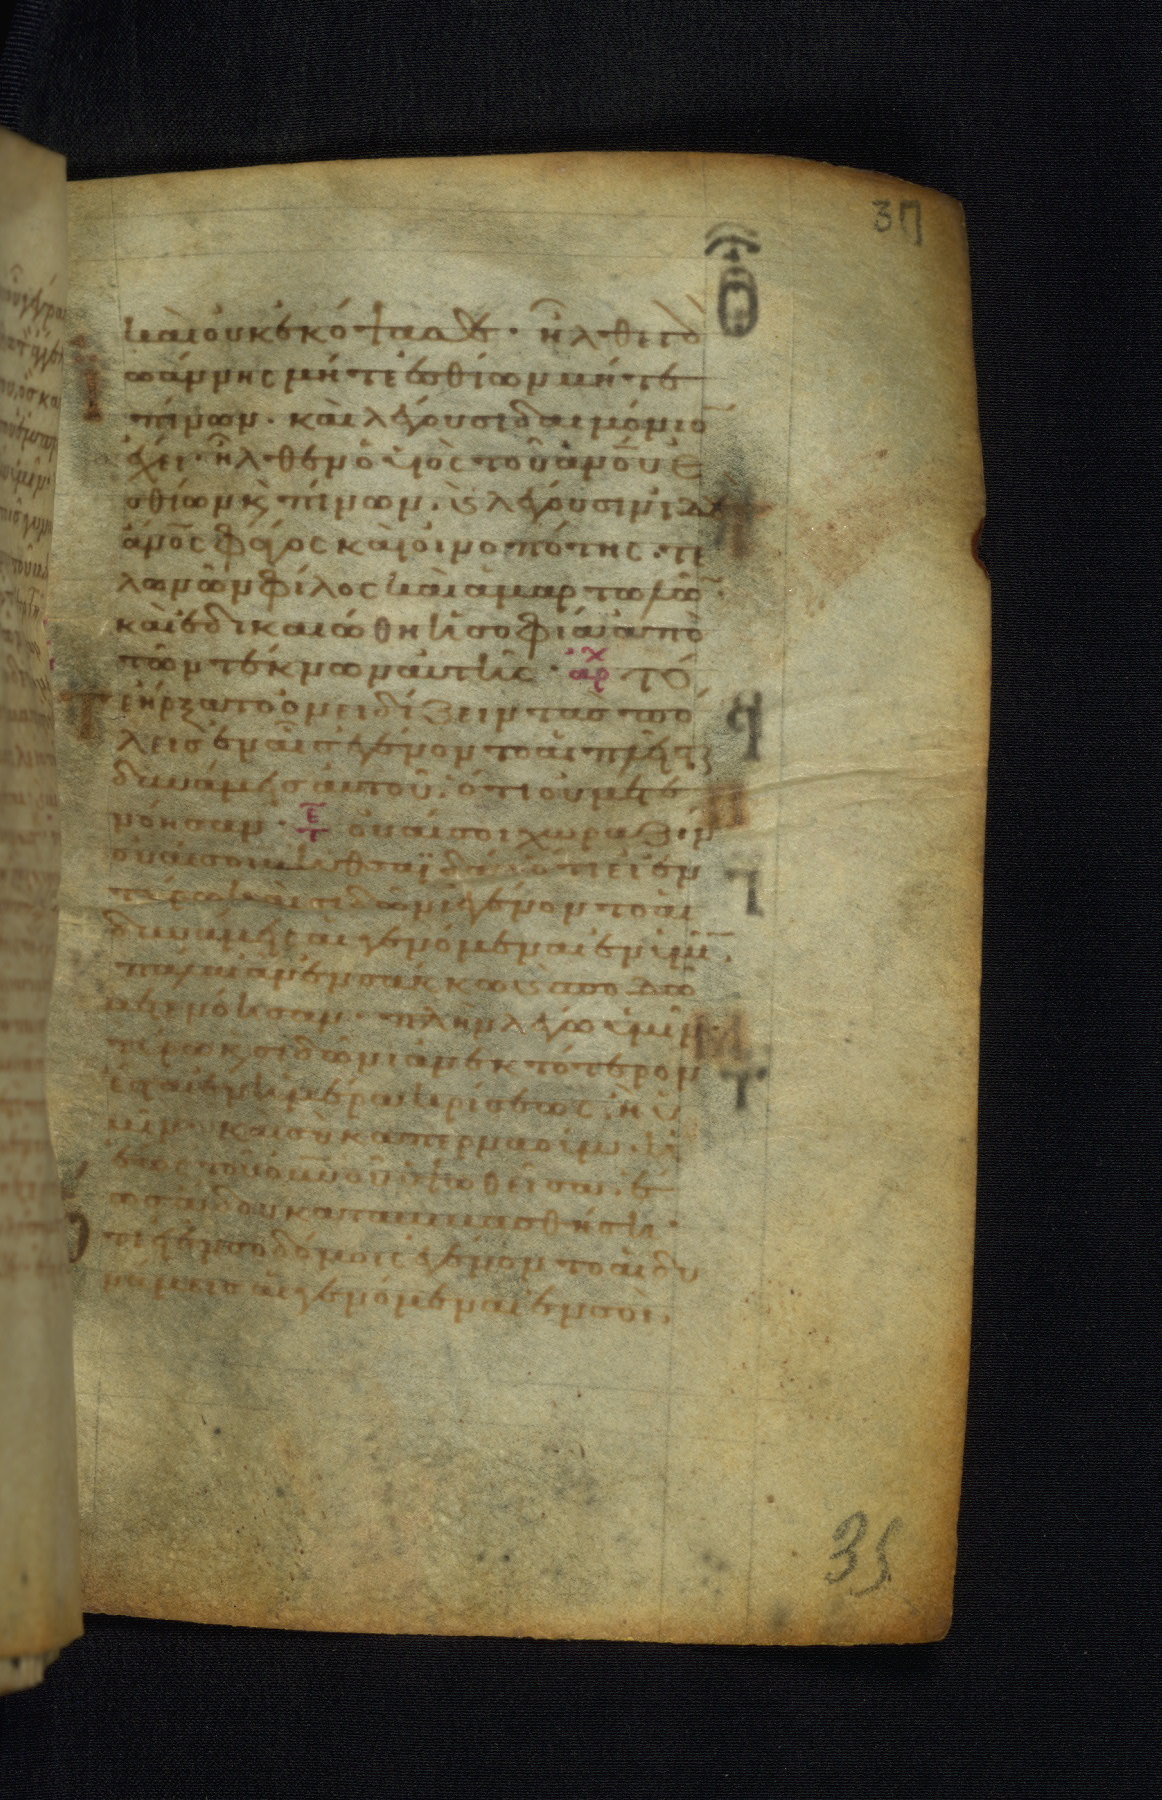 37
καὶ οὐκ ἐκόψασθε · ἦλθε Ἰω
ωάννης μήτε ἐσθίων μήτε
πίνων · καὶ λέγουσι δαιμόνιον
ἔχει · ἦλθεν ὁ υἱὸς τοῦ ἀνου ἐ
σθίων κ πίνων · κ λέγουσιν ἰδοὺ
ἄνος φάγος καὶ οἰνοπότης · τε
λωνῶν φίλος καὶ ἁμαρτωλῶν ·
καὶ ἐδικαιώθη ἡ σοφία ἀπὸ
τῶν τέκνων αὐτῆς · αρχ Τό
τε ἤρξατο ὀνειδίζειν τὰς πό
λεις ἐν αἷς ἐγένοντο αἱ πλεῖσται
δυνάμεις αὐτοῦ · ὅτι οὐ μετε
νόησαν · οὐαί σοι χωραζεὶν
οὐαί σοι βηθσαϊδά · ὅτι εἰ ἐν
τύρω καὶ σιδῶνι ἐγένοντο αἱ
δυνάμεις αἱ γενόμεναι ἐν ὑμῖν ·
πάλαι ἂν ἐν σάκκω κ σποδῶ
μετενόησαν · πλὴν λέγω ὑμῖν ·
τύρω κ σιδῶνι ἀνεκτότερον
ἔσται ἐν ἡμέρα κρίσεως · ἢ ὑ
μῖν · καὶ σὺ καπερναούμ · ἡ
ἕως τοῦ οὐνου ὑψωθεῖσα · ἕ
ως ἅδου καταβιβασθήση ·
ὅτι εἰ ἐν σοδόμοις ἐγένοντο αἱ δυ
νάμεις αἱ γενόμεναι ἐν σοὶ ·
35